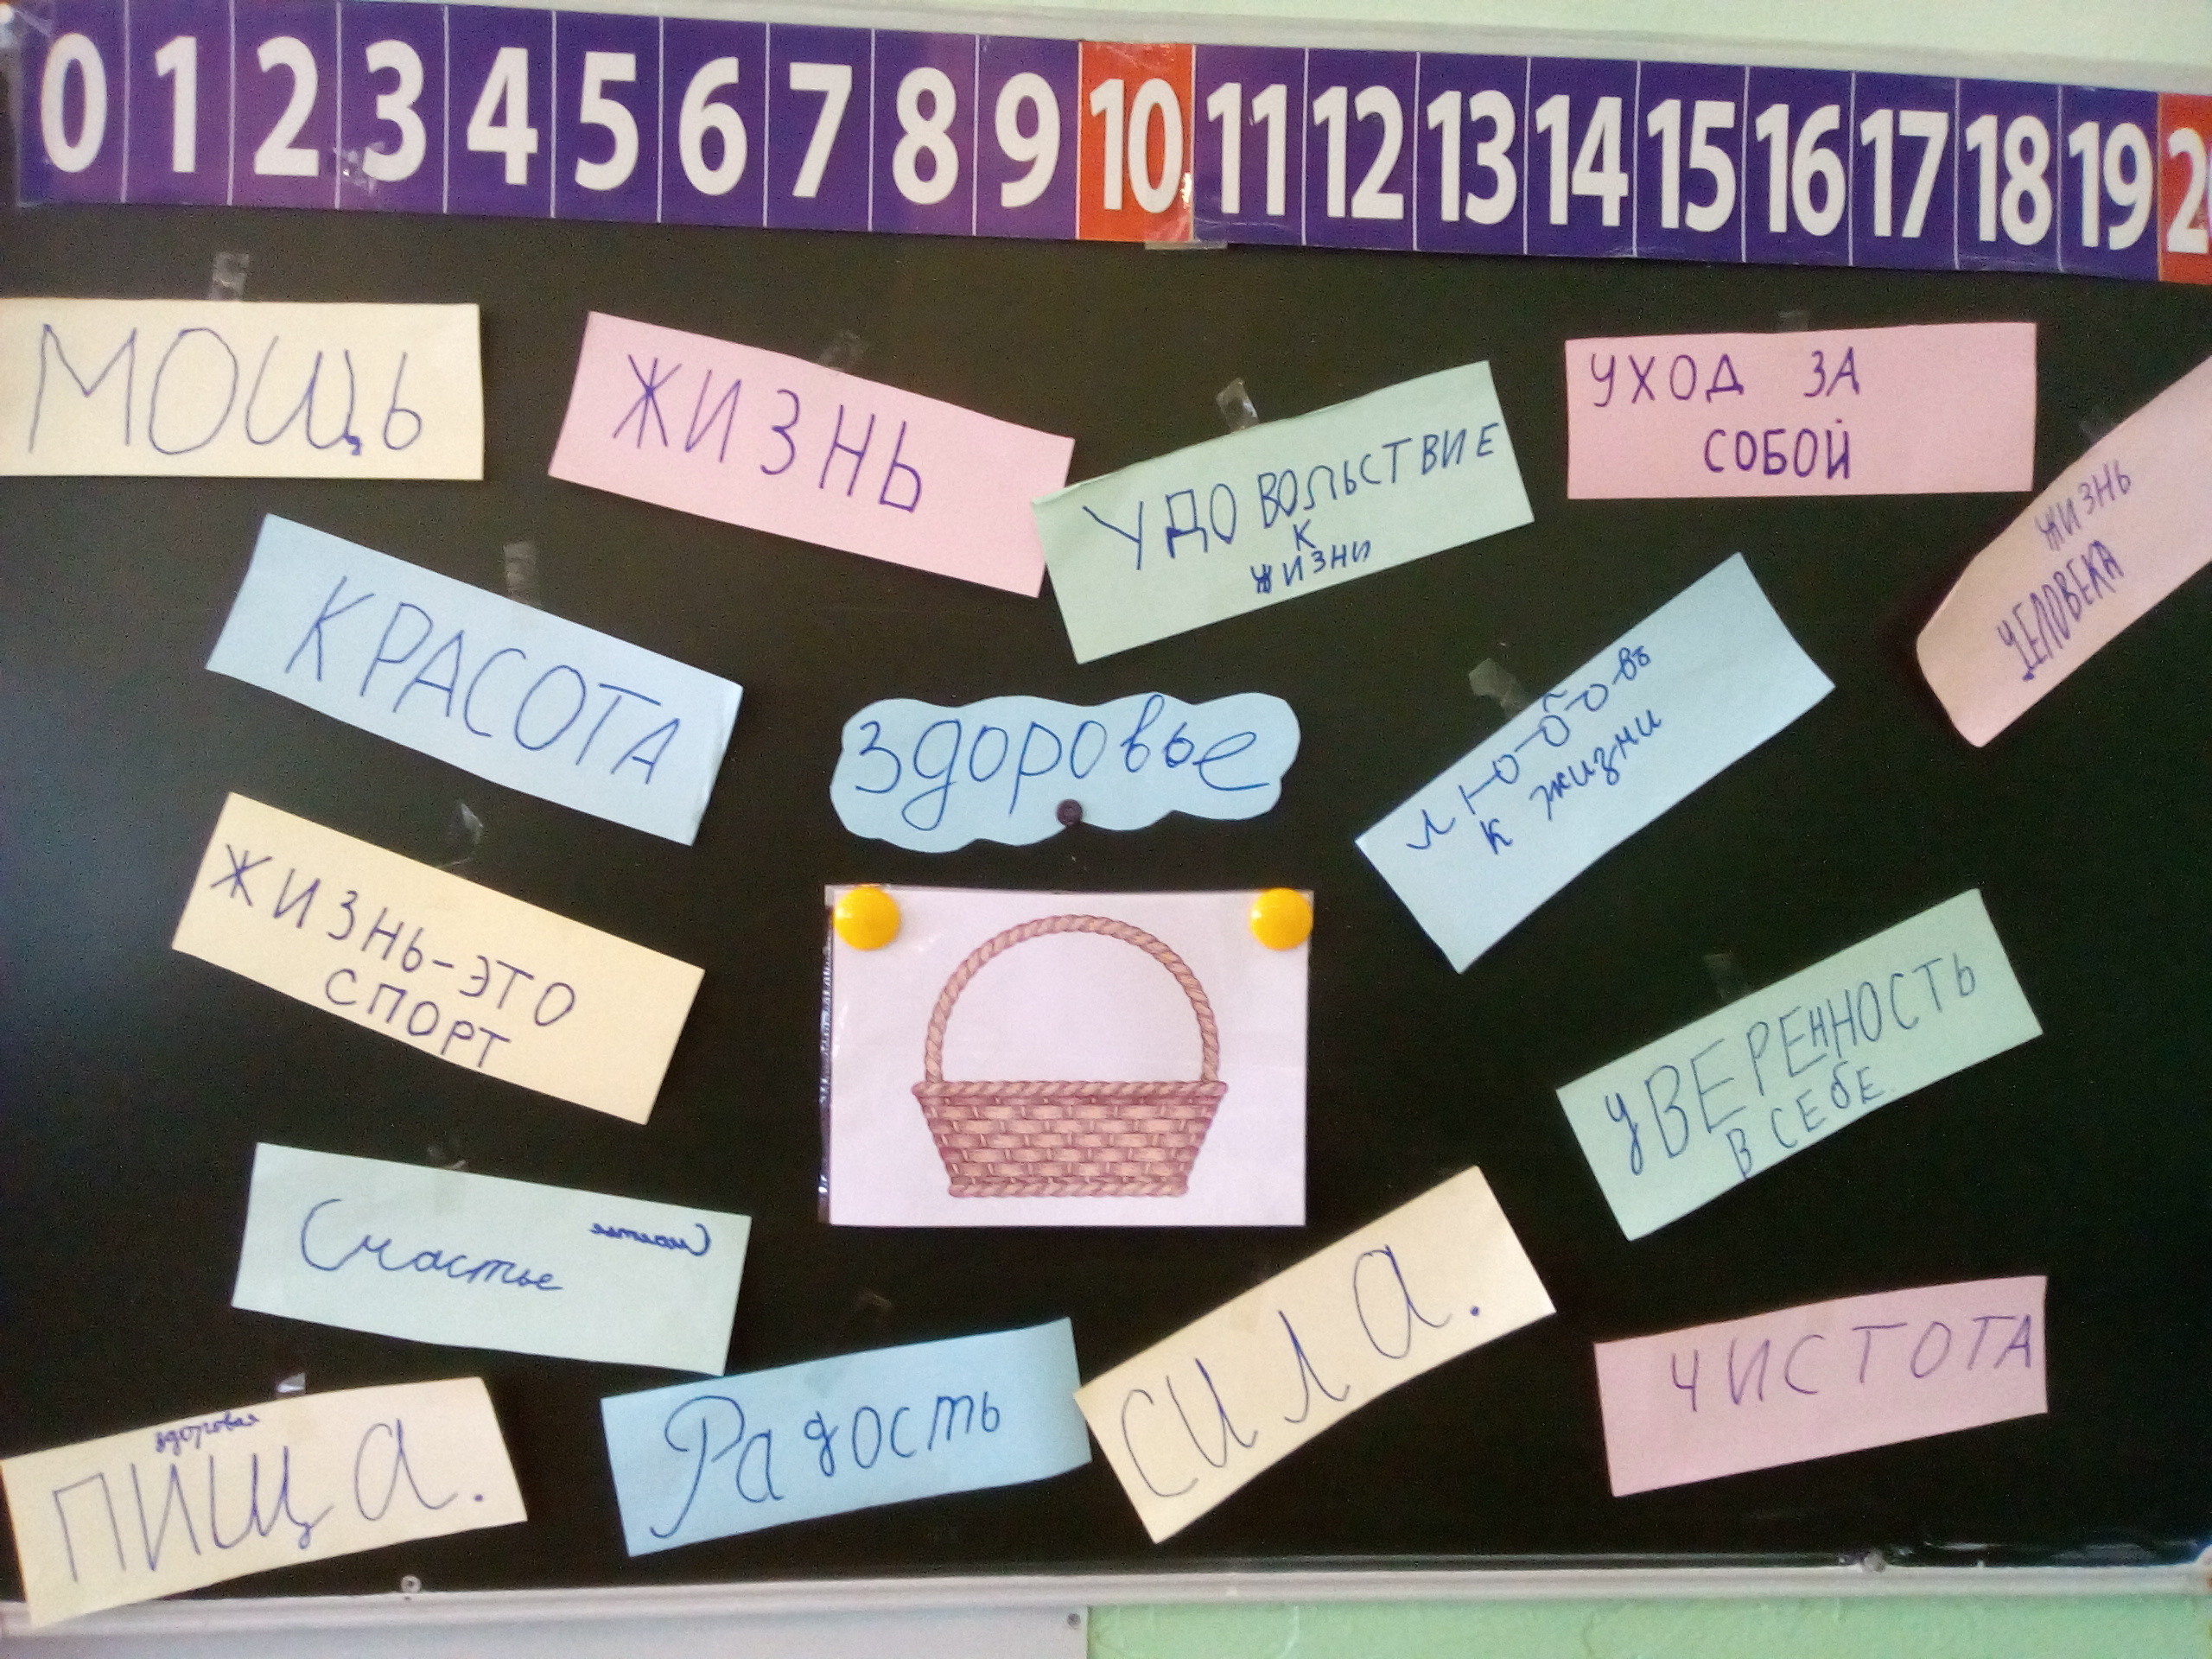 0 1 2 3 4 5 6 7 8 9 10 11 12 13 14 15 16 17 18 19 20
МОЩЬ
ЖИЗНЬ
УДОВОЛЬСТВИЕ
К
ЖИЗНИ
УХОД ЗА
СОБОЙ
ЖИЗНЬ
ЧЕЛОВЕКА
КРАСОТА
Здоровье
Любовь
к жизни
ЖИЗНЬ-ЭТО
СПОРТ
УВЕРЕННОСТЬ
В СЕБЕ
Счастье
Счастье
здоровая
ПИЩА.
Радость
СИЛА.
ЧИСТОТА